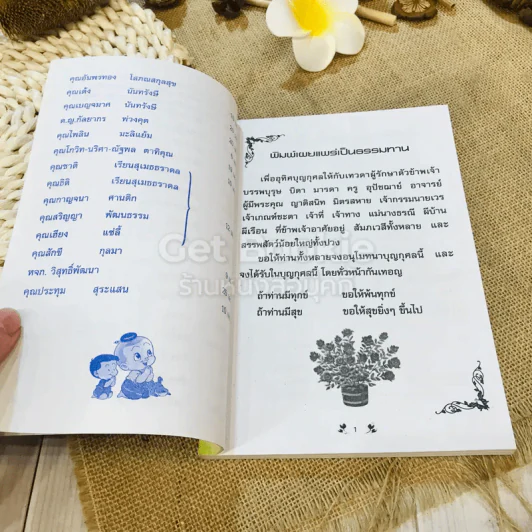 คุณอัมพรทอง โสภณสกุลสุข
คุณเต้ง นันทรังษี
คุณเบญจมาศ นันทรังษี
ด.ญ.กัลยากร พ่วงคุต
คุณไพลิน มะลินยัม
คุณโกวิท-นริศา-ณัฐพล ตาทิคุณ
คุณชาติ เรียนสุเมธธราดล
คุณธิติ เรียนสุเมธธราดล
คุณกาญจนา คานติก
คุณสริญญา พัฒนธรรม
คุณเฮียง แซ่ลี้
คุณลักขี กุลมา
หจก. วิสุทธิ์พัฒนา
คุณประทุม สุระแสน
พิมพ์เผยแพร่เป็นธรรมทาน
เพื่ออุทิศบุญกุศลให้กับเทวดาผู้รักษาตัวข้าพเจ้า
บรรพบุรุษ บิดา มารดา ครู อุปัชฌาย์ อาจารย์
ผู้มีพระคุณ ญาติสนิท มิตรสหาย เจ้ากรรมนายเวร
เจ้าเกณฑ์ชะตา เจ้าที่ เจ้าทาง แม่นางธรณี ผีบ้าน
ผีเรือน ที่ข้าพเจ้าอาศัยอยู่ สัมภเวสีทั้งหลาย และ
สรรพสัตว์น้อยใหญ่ทั้งปวง
ขอให้ท่านทั้งหลายจงอนุโมทนาบุญกุศลนี้ และ
จงได้รับในบุญกุศลนี้ โดยทั่วหน้ากันเทอญ
ถ้าท่านมีทุกข์ ขอให้พ้นทุกข์
ถ้าท่านมีสุข ขอให้สุขยิ่งๆ ขึ้นไป
1